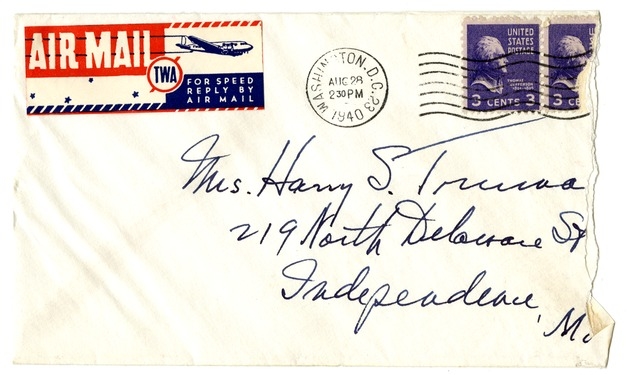 AIR MAIL
TWA
FOR SPEED
REPLY BY
AIR MAIL
WASHINGTON, D.C. 23
AUG 28
2 30 PM
1940
UNITED
STATES
POSTAGE
THOMAS
JEFFERSON
3 CENTS 3
U
3 CE
Mrs. Harry S. Truma
219 North Delaware St
Independence,
Mo